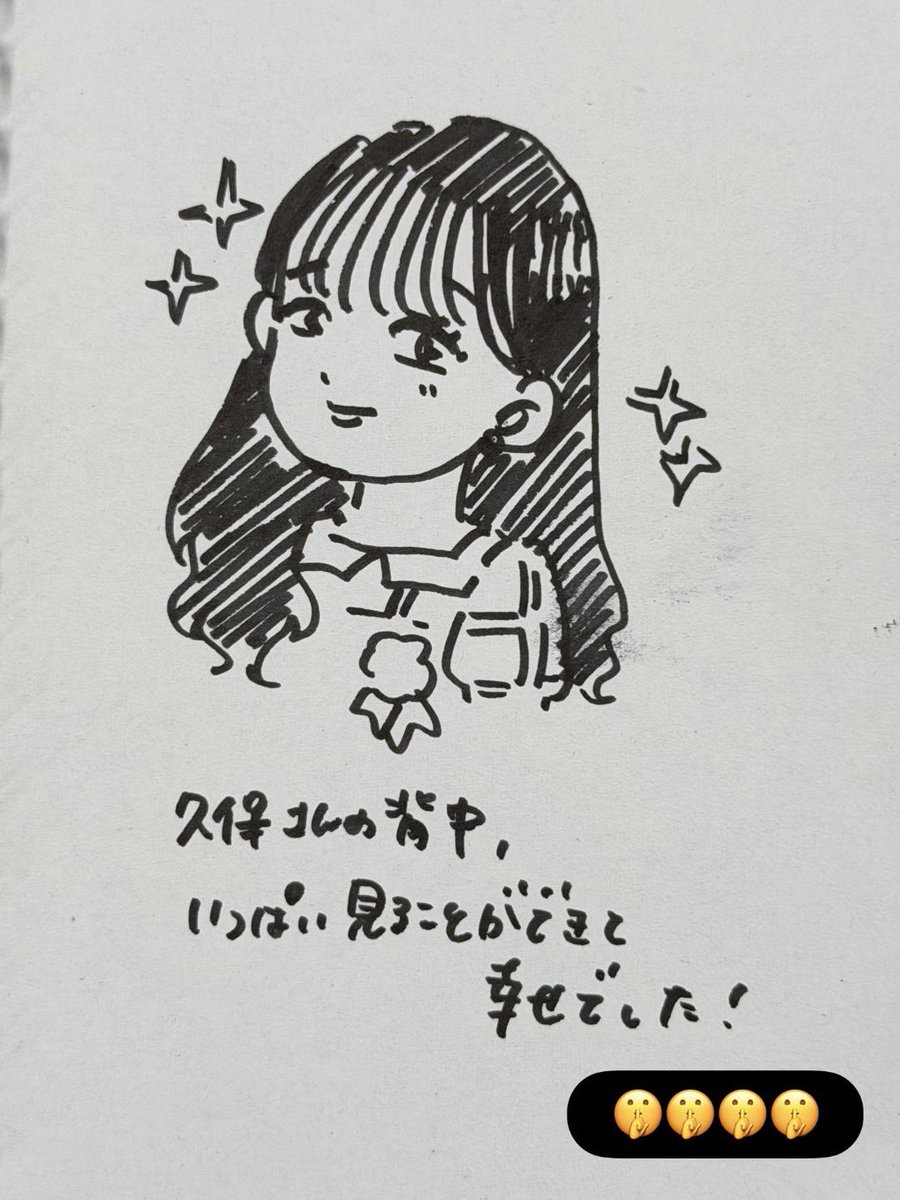 久保さんの背中,
いっぱい見ることができて
幸せでした!
🤫🤫🤫🤫